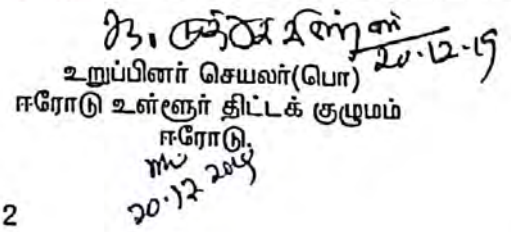 20-12-19
உறுப்பினர் செயலர்(பொ)
ஈரோடு உள்ளூர் திட்டக் குழுமம்
ஈரோடு.
20.12.2019
2